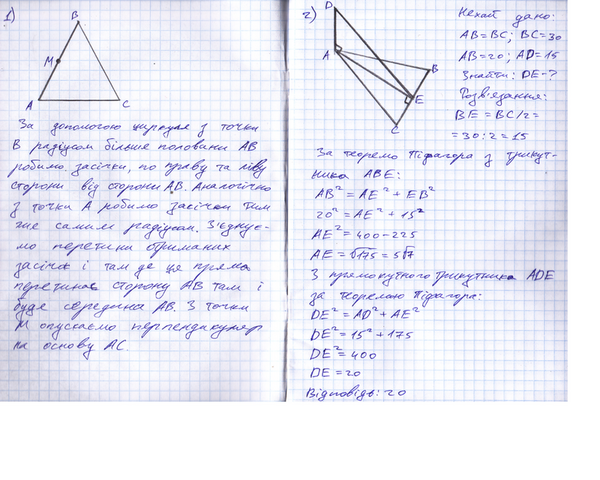 1)
B
M
A
C
За допомогою циркуля з точки
B радіусом більше половини AB
робимо засічки, по праву та ліву
сторони від сторони AB. Аналогічно
з точки A робимо засічки тим
же самим радіусом. З'єднує-
мо перетини отриманих
засічк і там де ця пряма
перетинає сторону AB там і
буде середина AB. З точки
M опускаємо перпендикуляр
на основу AC.
2)
D
A
B
E
C
Нехай дано:
AB=BC; BC=30
AB=20; AD=15
Знайти: DE-?
Розв'язання:
BE=BC/2=
=30:2=15
За теоремо Піфагора з трикут-
ника ABE:
AB²=AE²+EB²
20²=AE²+15²
AE²=400-225
AE=√175=5√7
З прямокутного трикутника ADE
за теоремою Піфагора:
DE²=AD²+AE²
DE²=15²+175
DE²=400
DE=20
Відповідь: 20